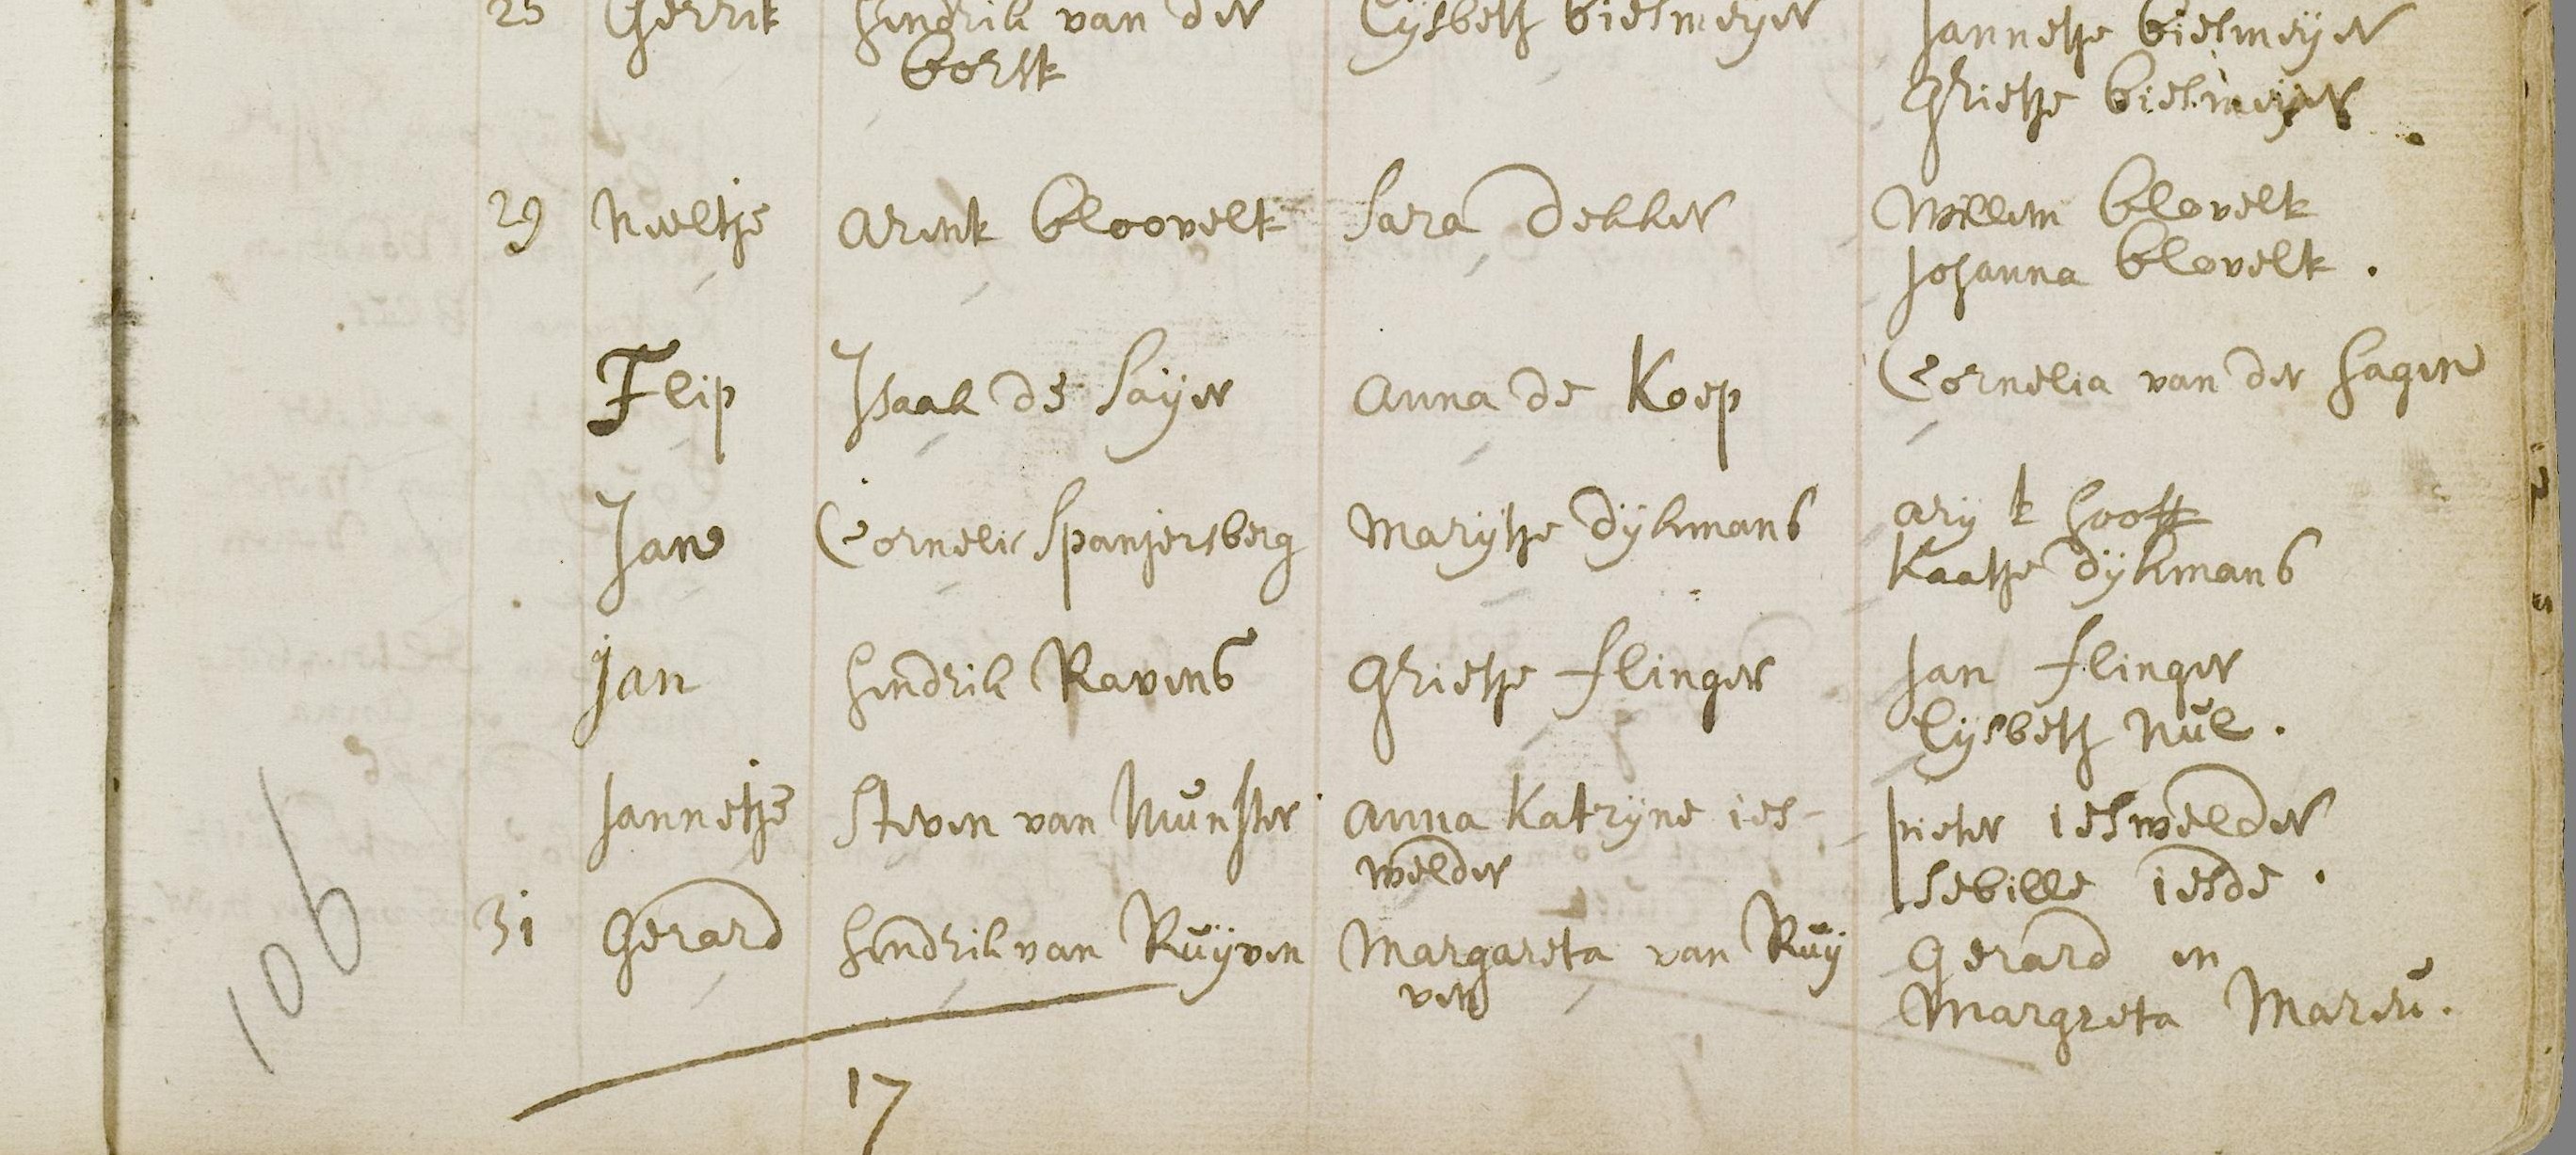 25 Gerrit Hendrik van der Lysbeth bielmeyer Jannetje bielmeyer
borst Grietje bielmeyer
29 Neeltje Arent bloovelt Sara Dekker Willem blovelt
Johanna blovelt .
Flip Isaak de Sayer Anna de Koep Cornelia van der Hagen
Jan Cornelis Spanjersberg Marytje Dykmans Ary t Hooft
Kaatje Dykmans
Jan Hendrik Ravens Grietje Flinger Jan Flinger
Lysbeth Nul .
Jannetje Steven van Munster Anna Katryne ies- Pieter ieswelder
welder Sebille iesde .
31 Gerard Hendrik van Ruyven Margareta van Ruy Gerard en
ven Margreta
17
106